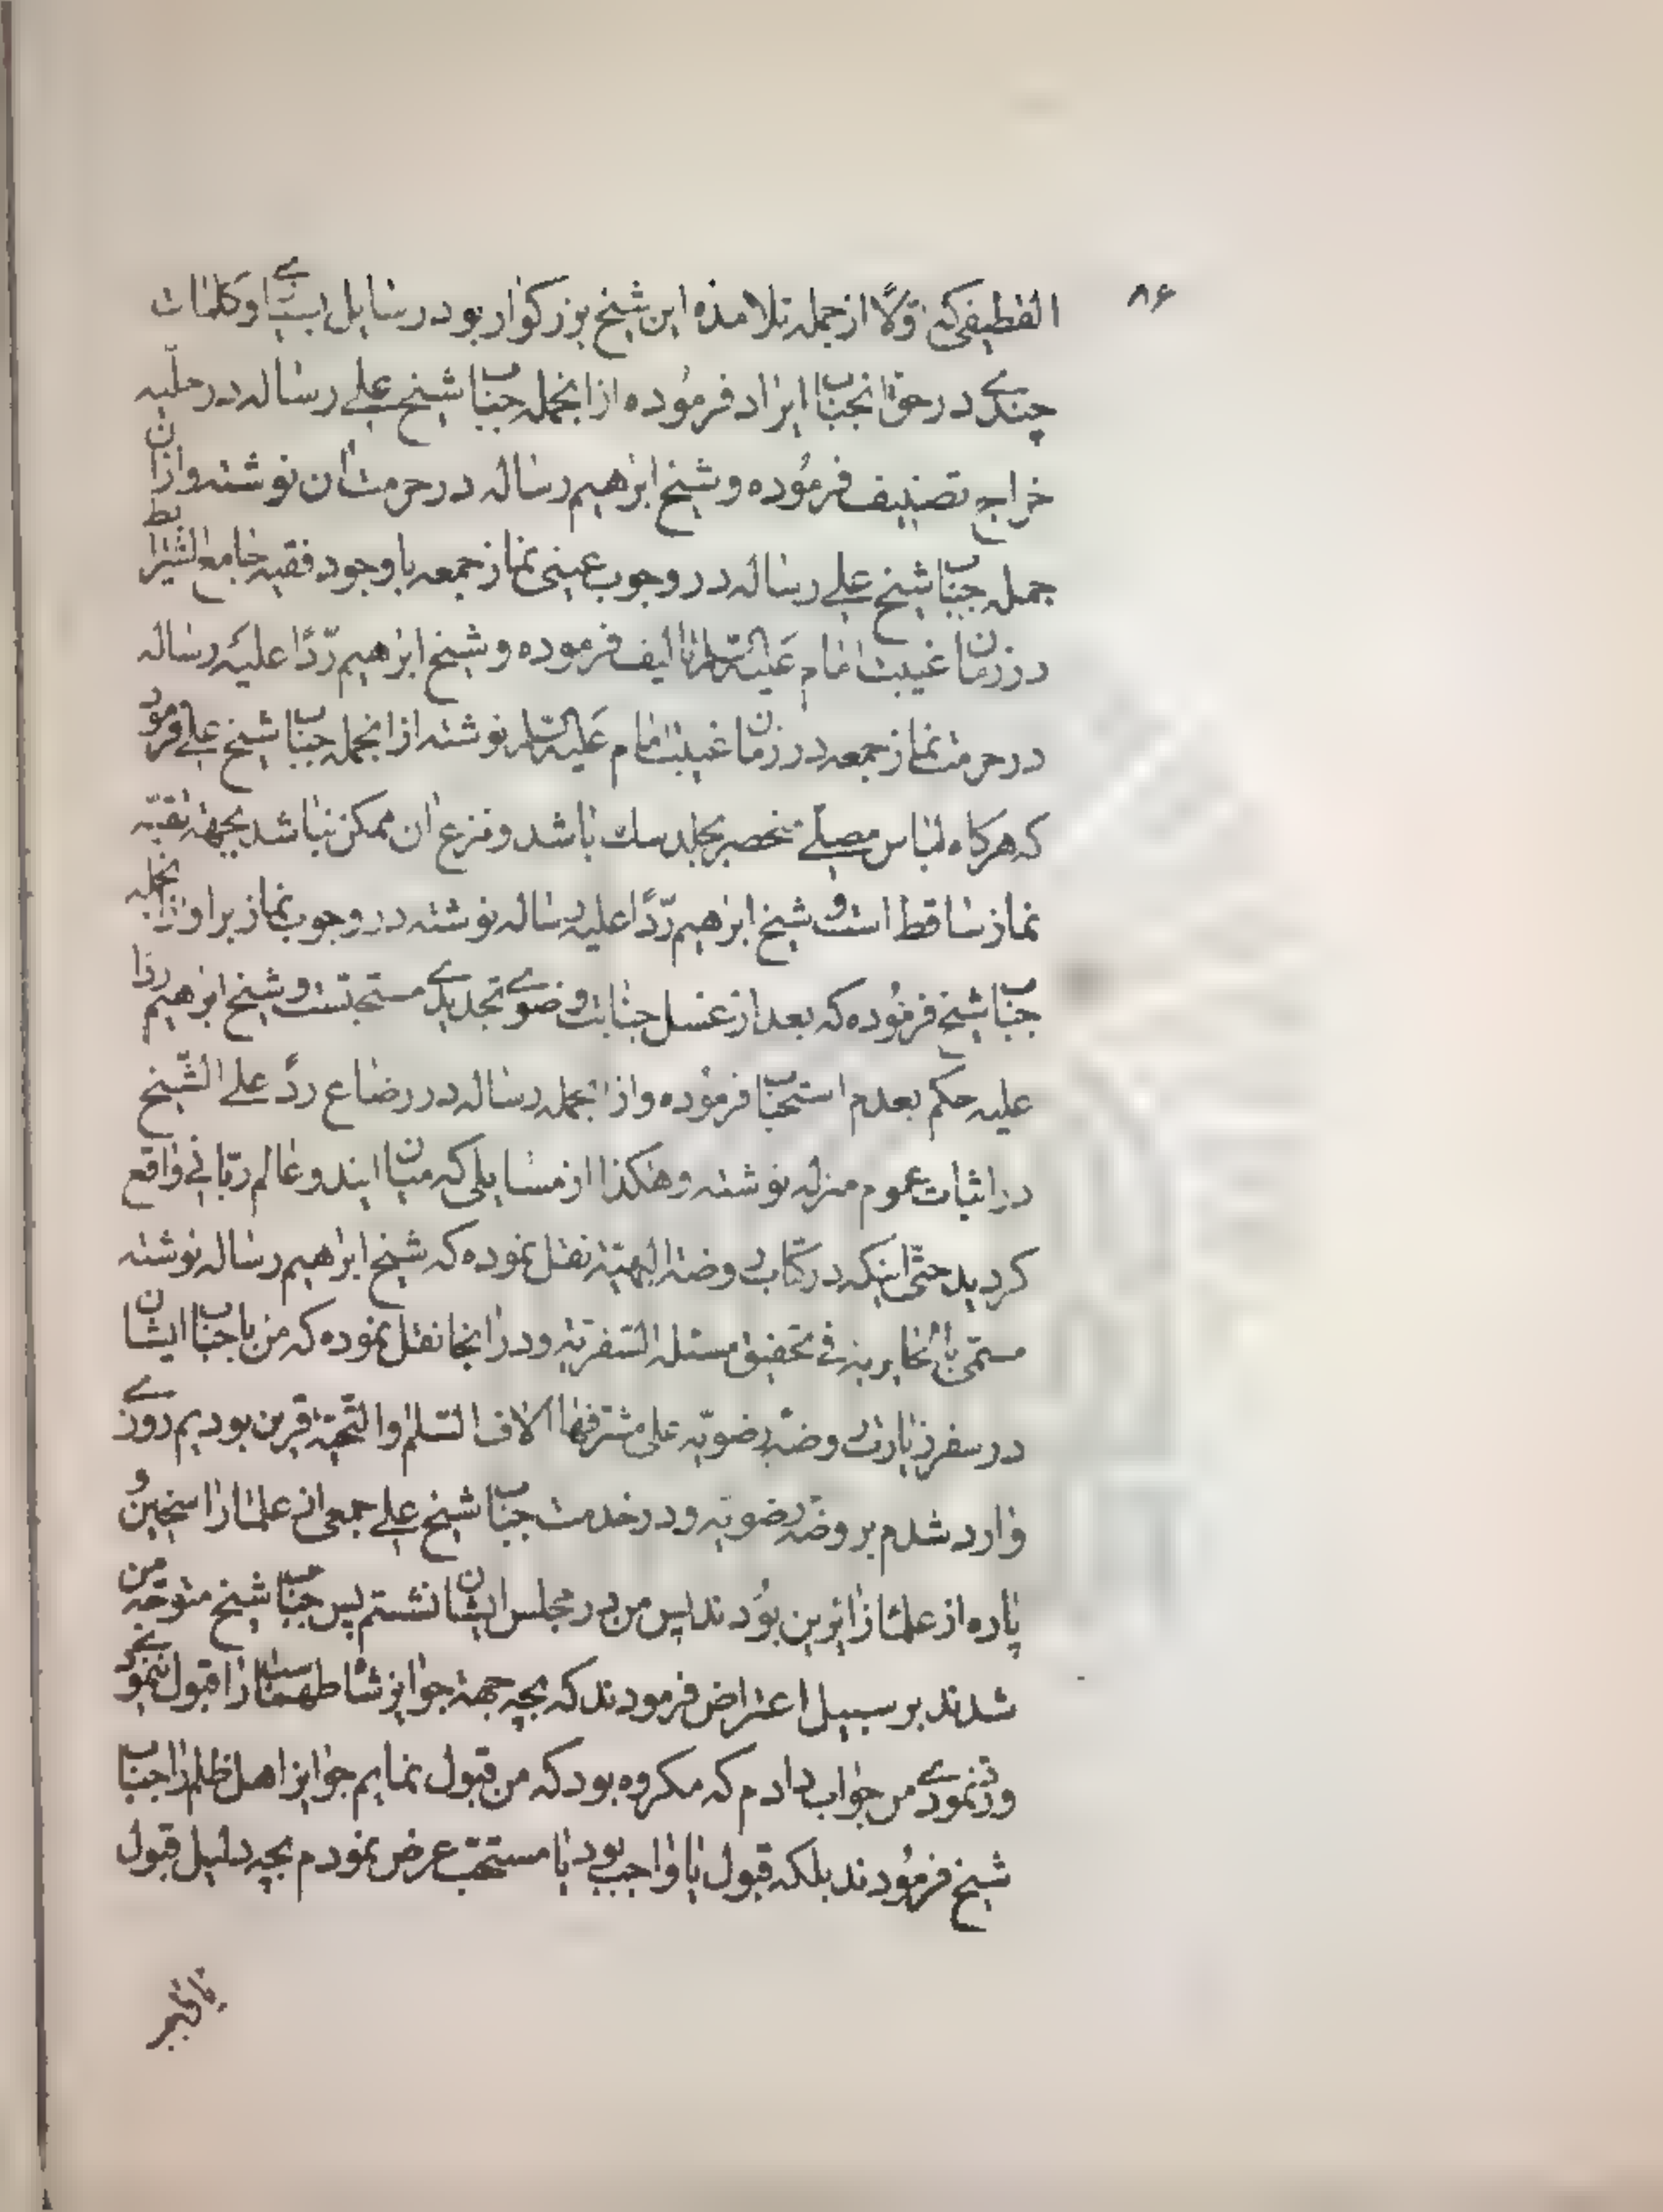 ۸۶
القطیفی که اولاً از جمله تلامذه این شیخ بزرکوار بود در رسایل بسیاری و کلمات
چندی در حق انجناب ایراد فرموده از انجمله جناب شیخ علی رساله در حلّیه
خراج تصنیف فرموده و شیخ ابرهیم رساله در حرمت آن نوشته و از آن
جمله جناب شیخ علی رساله در وجوب عینی نماز جمعه با وجود فقیه جامع الشرایط
در زمان غیبت امام علیه السلام تالیف فرموده و شیخ ابرهیم ردّاً علیه رساله
در حرمت نماز جمعه در زمان غیبت امام علیه السلام نوشته از انجمله جناب شیخ علی فرمود
که هرکاه لباس مصلّی منحصر بجلد سك باشد و نزع ان ممکن نباشد بجهة تقیّه
نماز ساقط است و شیخ ابرهیم ردّاً علیه رساله نوشته در وجوب نماز بر او و از انجمله
جناب شیخ فرموده که بعد از غسل جنابت وضوی تجدیدی مستحبست و شیخ ابرهیم ردا
علیه حکم بعدم استحباب فرموده و از انجمله رساله در رضاع ردّ علی الشیخ
در اثبات عموم منزله نوشته و هکذا از مسایلی که میان ایندو عالم ربّانی واقع
کردید حتّی اینکه در کتاب روضة البهیّه نقل نموده که شیخ ابرهیم رساله نوشته
مسمّی بالحایریه فی تحقیق مسئله السفریه و در انجا نقل نموده که من با جناب ایشان
در سفر زیارت روضه رضویّه علی مشرفها الاف السلام والتحیّة قرین بودیم روزی
وارد شدم بر وضه رضویّه و در خدمت جناب شیخ علی جمعی از علماء راسخین و
پاره از علماء زائرین بودند پس من در مجلس ایشان نشستم پس جناب شیخ متوجّه من
شدند بر سبیل اعتراض فرمودند که بچه جهة جوایز شاه طهماسب را قبول ننمودی
نمودی من جواب دادم که مکروه بود که من قبول نمایم جوایز اهل ظلم را جناب
شیخ فرمودند بلکه قبول یا واجب بود یا مستحبّ عرض نمودم بچه دلیل قبول